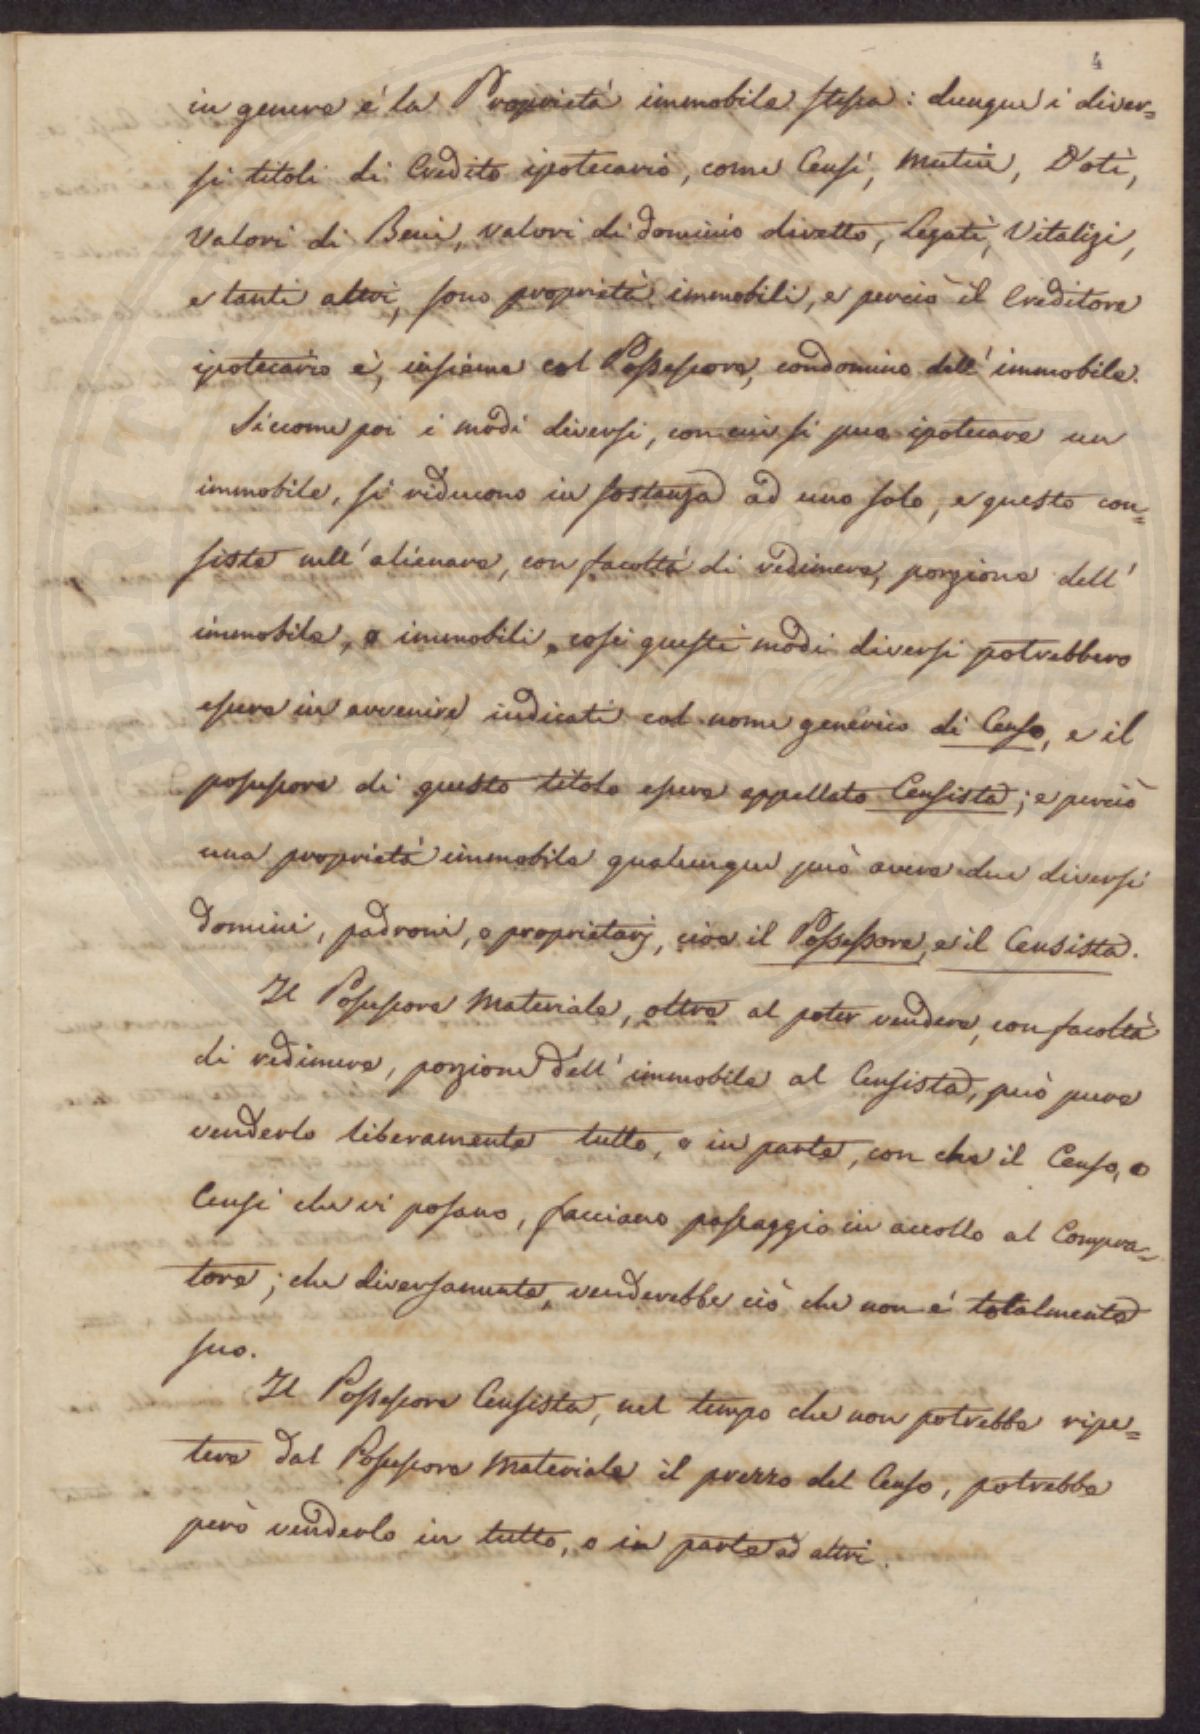 4
in genere é la Proprietà immobile stessa : dunque i diver=
si titoli di Credito ipotecario, come Censi, Mutui, Doti,
Valori di Beni, valori di dominio diretto, Legati, Vitalizi,
e tanti altri, sono proprietà immobili, e perciò il Creditore
ipotecario è, insieme col Possessore, condomino dell' immobile.
Siccome poi i modi diversi, con cui si può ipotecare un
immobile, si riducono in sostanza ad uno solo, e questo con=
siste nell' alienare, con facoltà di redimere, porzione dell'
immobile, o immobili, così questi modi diversi potrebbero
essere in avvenire indicati col nome generico di Censo, e il
possessore di questo titolo essere appellato Censista; e perciò
una proprietà immobile qualunque può avere due diversi
domini, padroni, o proprietarj, cioè il Possessore, e il Censista.
Il Possessore Materiale, oltre al poter vendere, con facoltà
di redimere, porzione dell' immobile al Censista, può pure
venderlo liberamente tutto, o in parte, con che il Censo, o
Censi che vi posano, facciano passaggio in accollo al Compra=
tore; che diversamente, venderebbe ciò che non é totalmente
suo.
Il Possessore Censista, nel tempo che non potrebbe ripe=
tere dal Possessore Materiale il prezzo del Censo, potrebbe
però venderlo in tutto, o in parte ad altri.